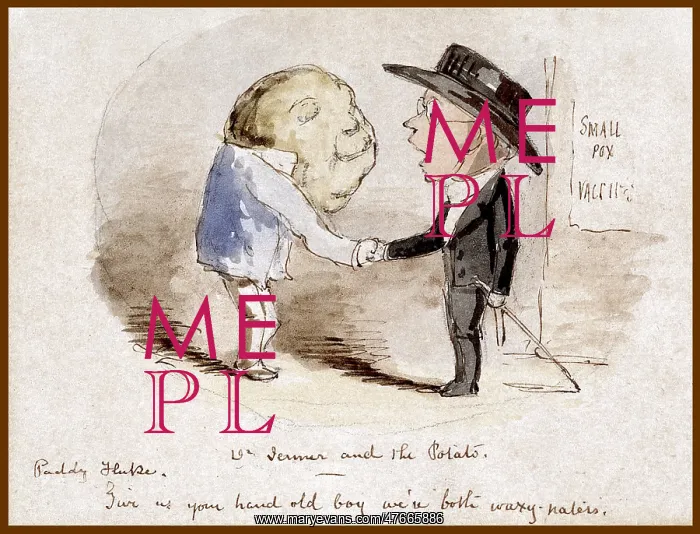 SMALL
POX
VACCI
ME
PL
ME
PL
Dr Jenner and the Potato.
Paddy Fluke.
Give us your hand old boy we're both waxy-naters.
www.maryevans.com/47665886